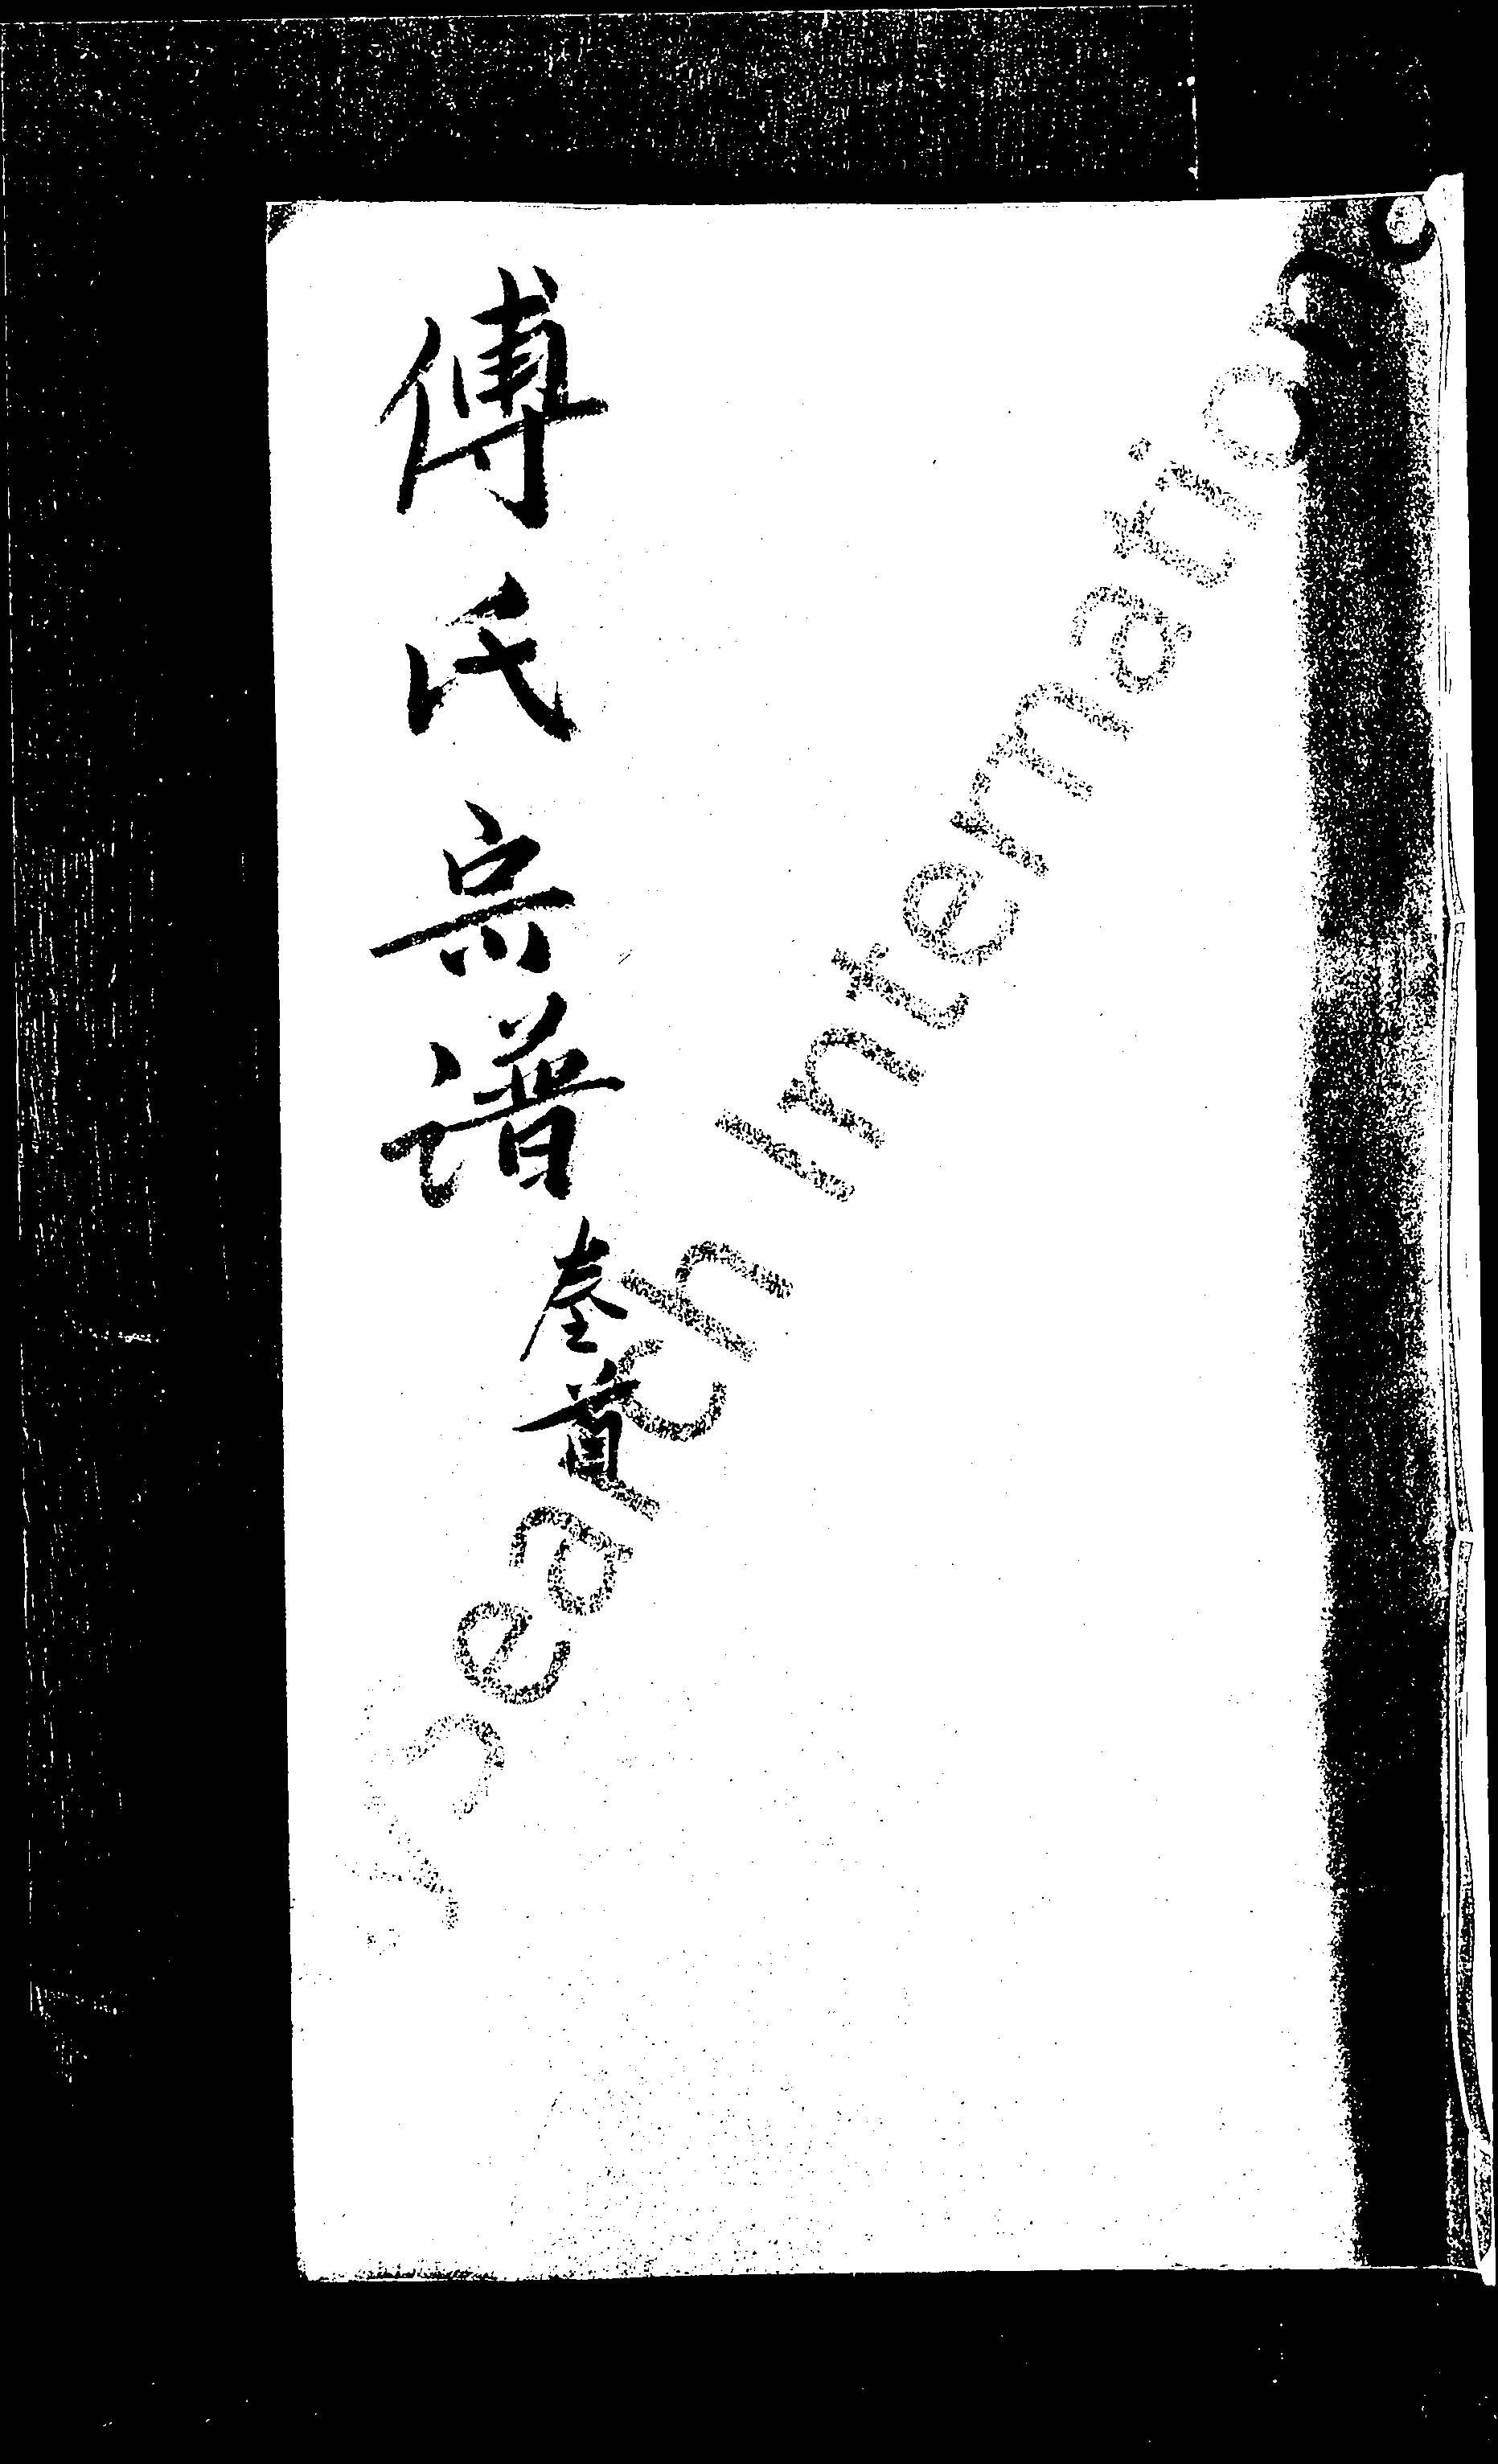 傅氏宗谱
卷首
ySearch International